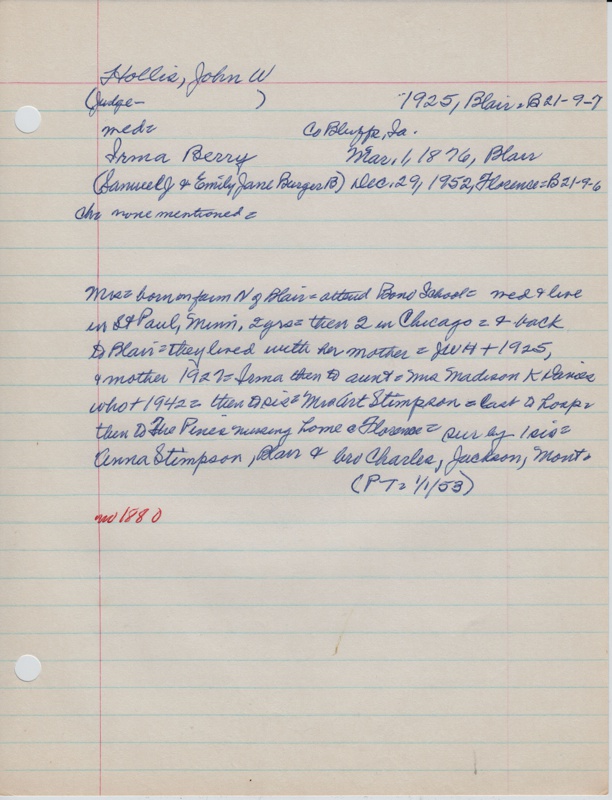 Hollis, John W
(Judge- ) 1925, Blair=B21-9-7
med= Co Bluffs, Ia.
Irma Berry Mar. 1, 1876, Blair
(Samuel J & Emily Jane Burger B) Dec. 29, 1952, Florence=B21-9-6
ch= none mentioned=
Mrs= born on farm N of Blair= attend Bono School= med & live
in St Paul, Minn, 2yrs= then 2 in Chicago= & back
to Blair= they lived with her mother= JWH + 1925,
& mother 1927= Irma then to aunt= Mrs Madison K
who + 1942= then to sis= Mrs Art Stimpson= last to hosp=
then to Pines nursing home @ Florence= sur by 1 sis=
Anna Stimpson, Blair & bro Charles, Jackson, Mont.
(P-T= 1/1/53)
no 1880